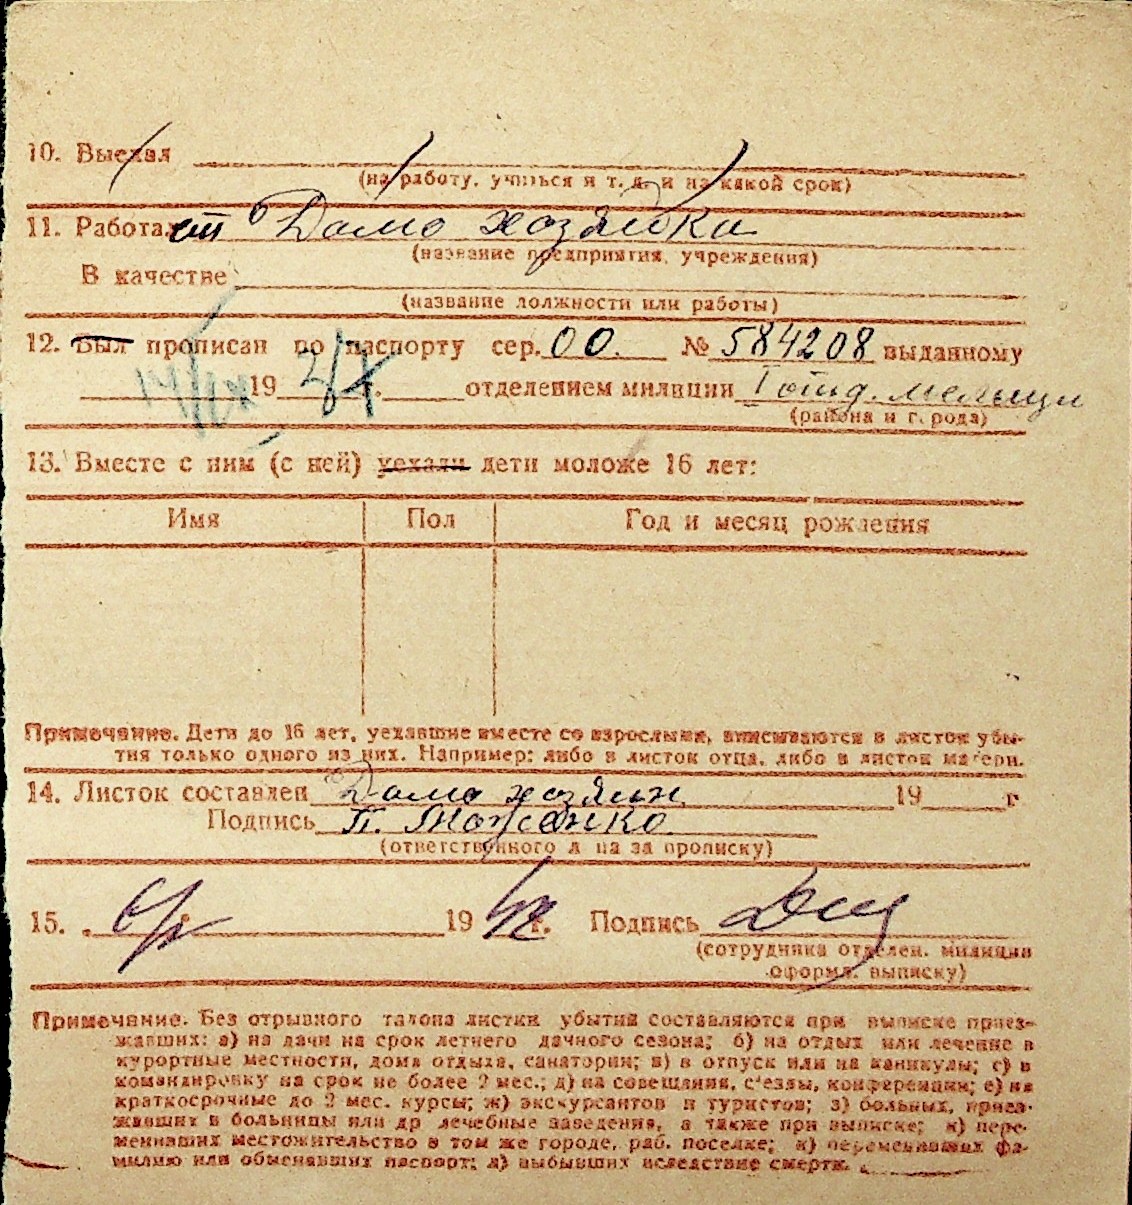 10. Выехал
(на работу, учиться и т. д. и на какой срок)
11. Работает Домо хозяйка
(название предприятия, учреждения)
В качестве
(название должности или работы)
12. Был прописан по паспорту сер. 00. № 584208 выданному
19 г. отделением милиции
(района и города)
13. Вместе с ним (с ней) уехали дети моложе 16 лет:
Имя Пол Год и месяц рождения
Примечание. Дети до 16 лет, уехавшие вместе со взрослыми, вписываются в листок убы-
тия только одного из них. Например: либо в листок отца, либо в листок матери.
14. Листок составлен Домо хозяин 19 г
Подпись П.
(ответственного лица за прописку)
15. 19 42 г. Подпись
(сотрудника отделен. милиции
оформл. выписку)
Примечание. Без отрывного талона листки убытия составляются при выписке приез-
жавших: а) на дачи на срок летнего дачного сезона; б) на отдых или лечение в
курортные местности, дома отдыха, санатории; в) в отпуск или на каникулы; г) в
командировку на срок не более 2 мес.; д) на совещания, с'езды, конференции; е) на
краткосрочные до 2 мес. курсы; ж) экскурсантов и туристов; з) больных, приез-
жавших в больницы или др лечебные заведения, а также при выписке; и) пере-
менивших местожительство в том же городе, раб. поселке; к) переменивших фа-
милию или обменявших паспорт; л) выбывших вследствие смерти.